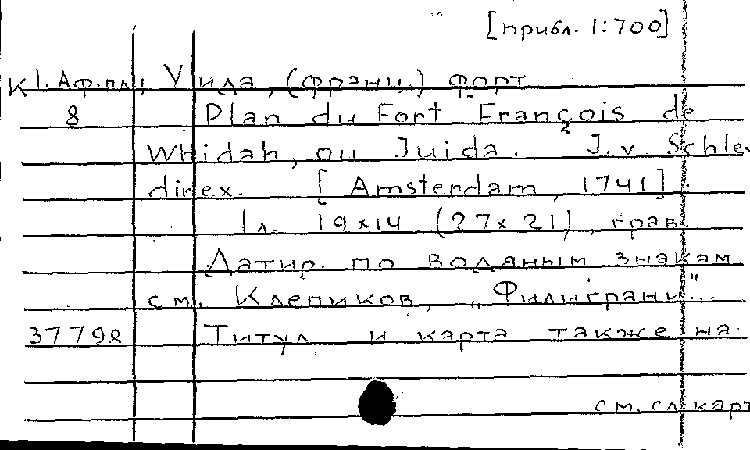 [прибл. 1:700]
К I. Аф.пл. Уида, (франц.) форт
8 Plan du Fort François de
Whidah, ou Juida. J. v. Schley
direx. [Amsterdam, 1741]
1 л. 19x14 (27x21), грав.
Датир. по водяным знакам
см. Клепиков, „Филиграни"...
37798 Титул и карта также на
см. сл. карт